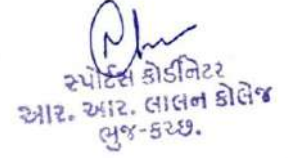 સ્પોર્ટસ કોર્ડીનેટર
આર. આર. લાલન કોલેજ
ભુજ-કચ્છ.